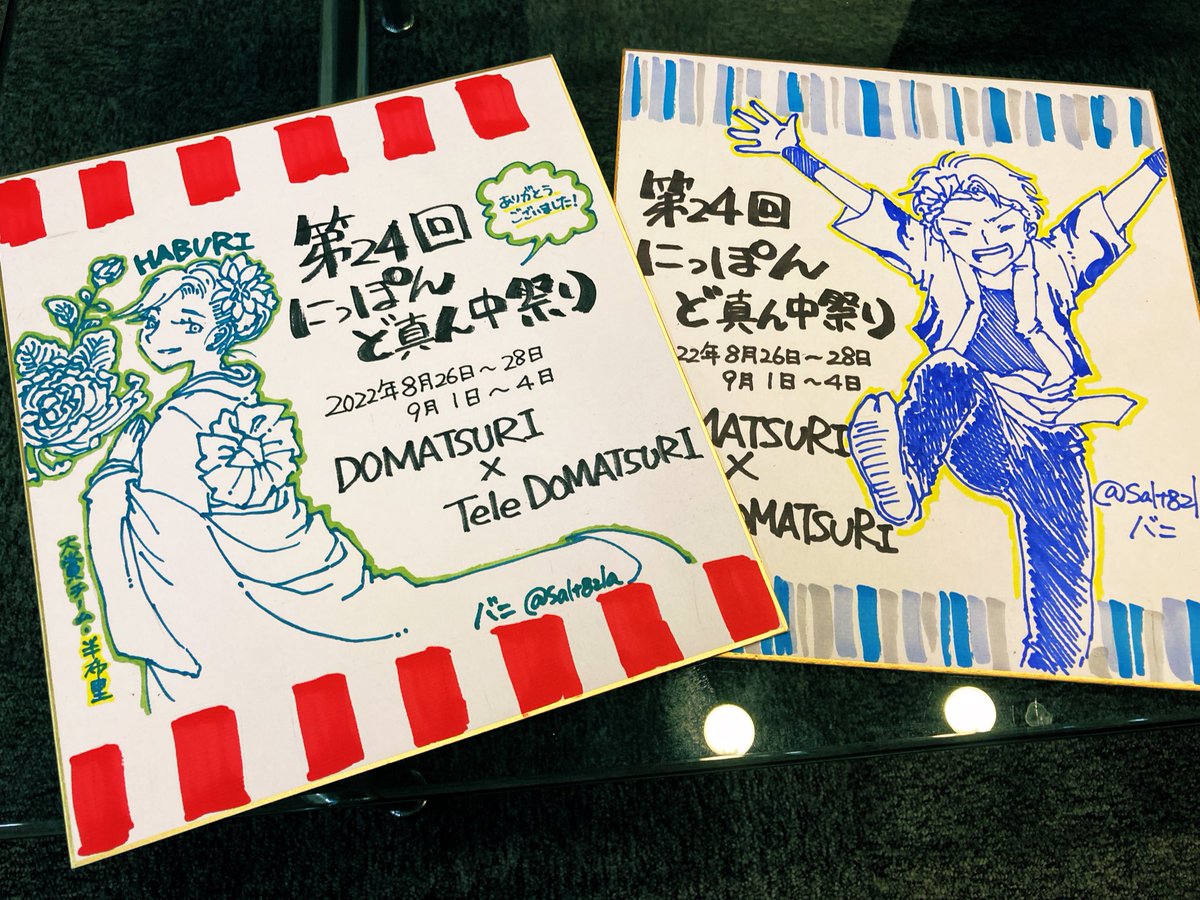 HABURI
第24回
にっぽん
ど真ん中祭り
ありがとう
ございました!
2022年8月26日～28日
9月1日～4日
DOMATSURI
×
Tele DOMATSURI
大賞チーム・半布里
バニ @salt82la
第24回
にっぽん
ど真ん中祭り
22年8月26日～28日
9月1日～4日
MATSURI
×
OMATSURI
@salt82l
バニ